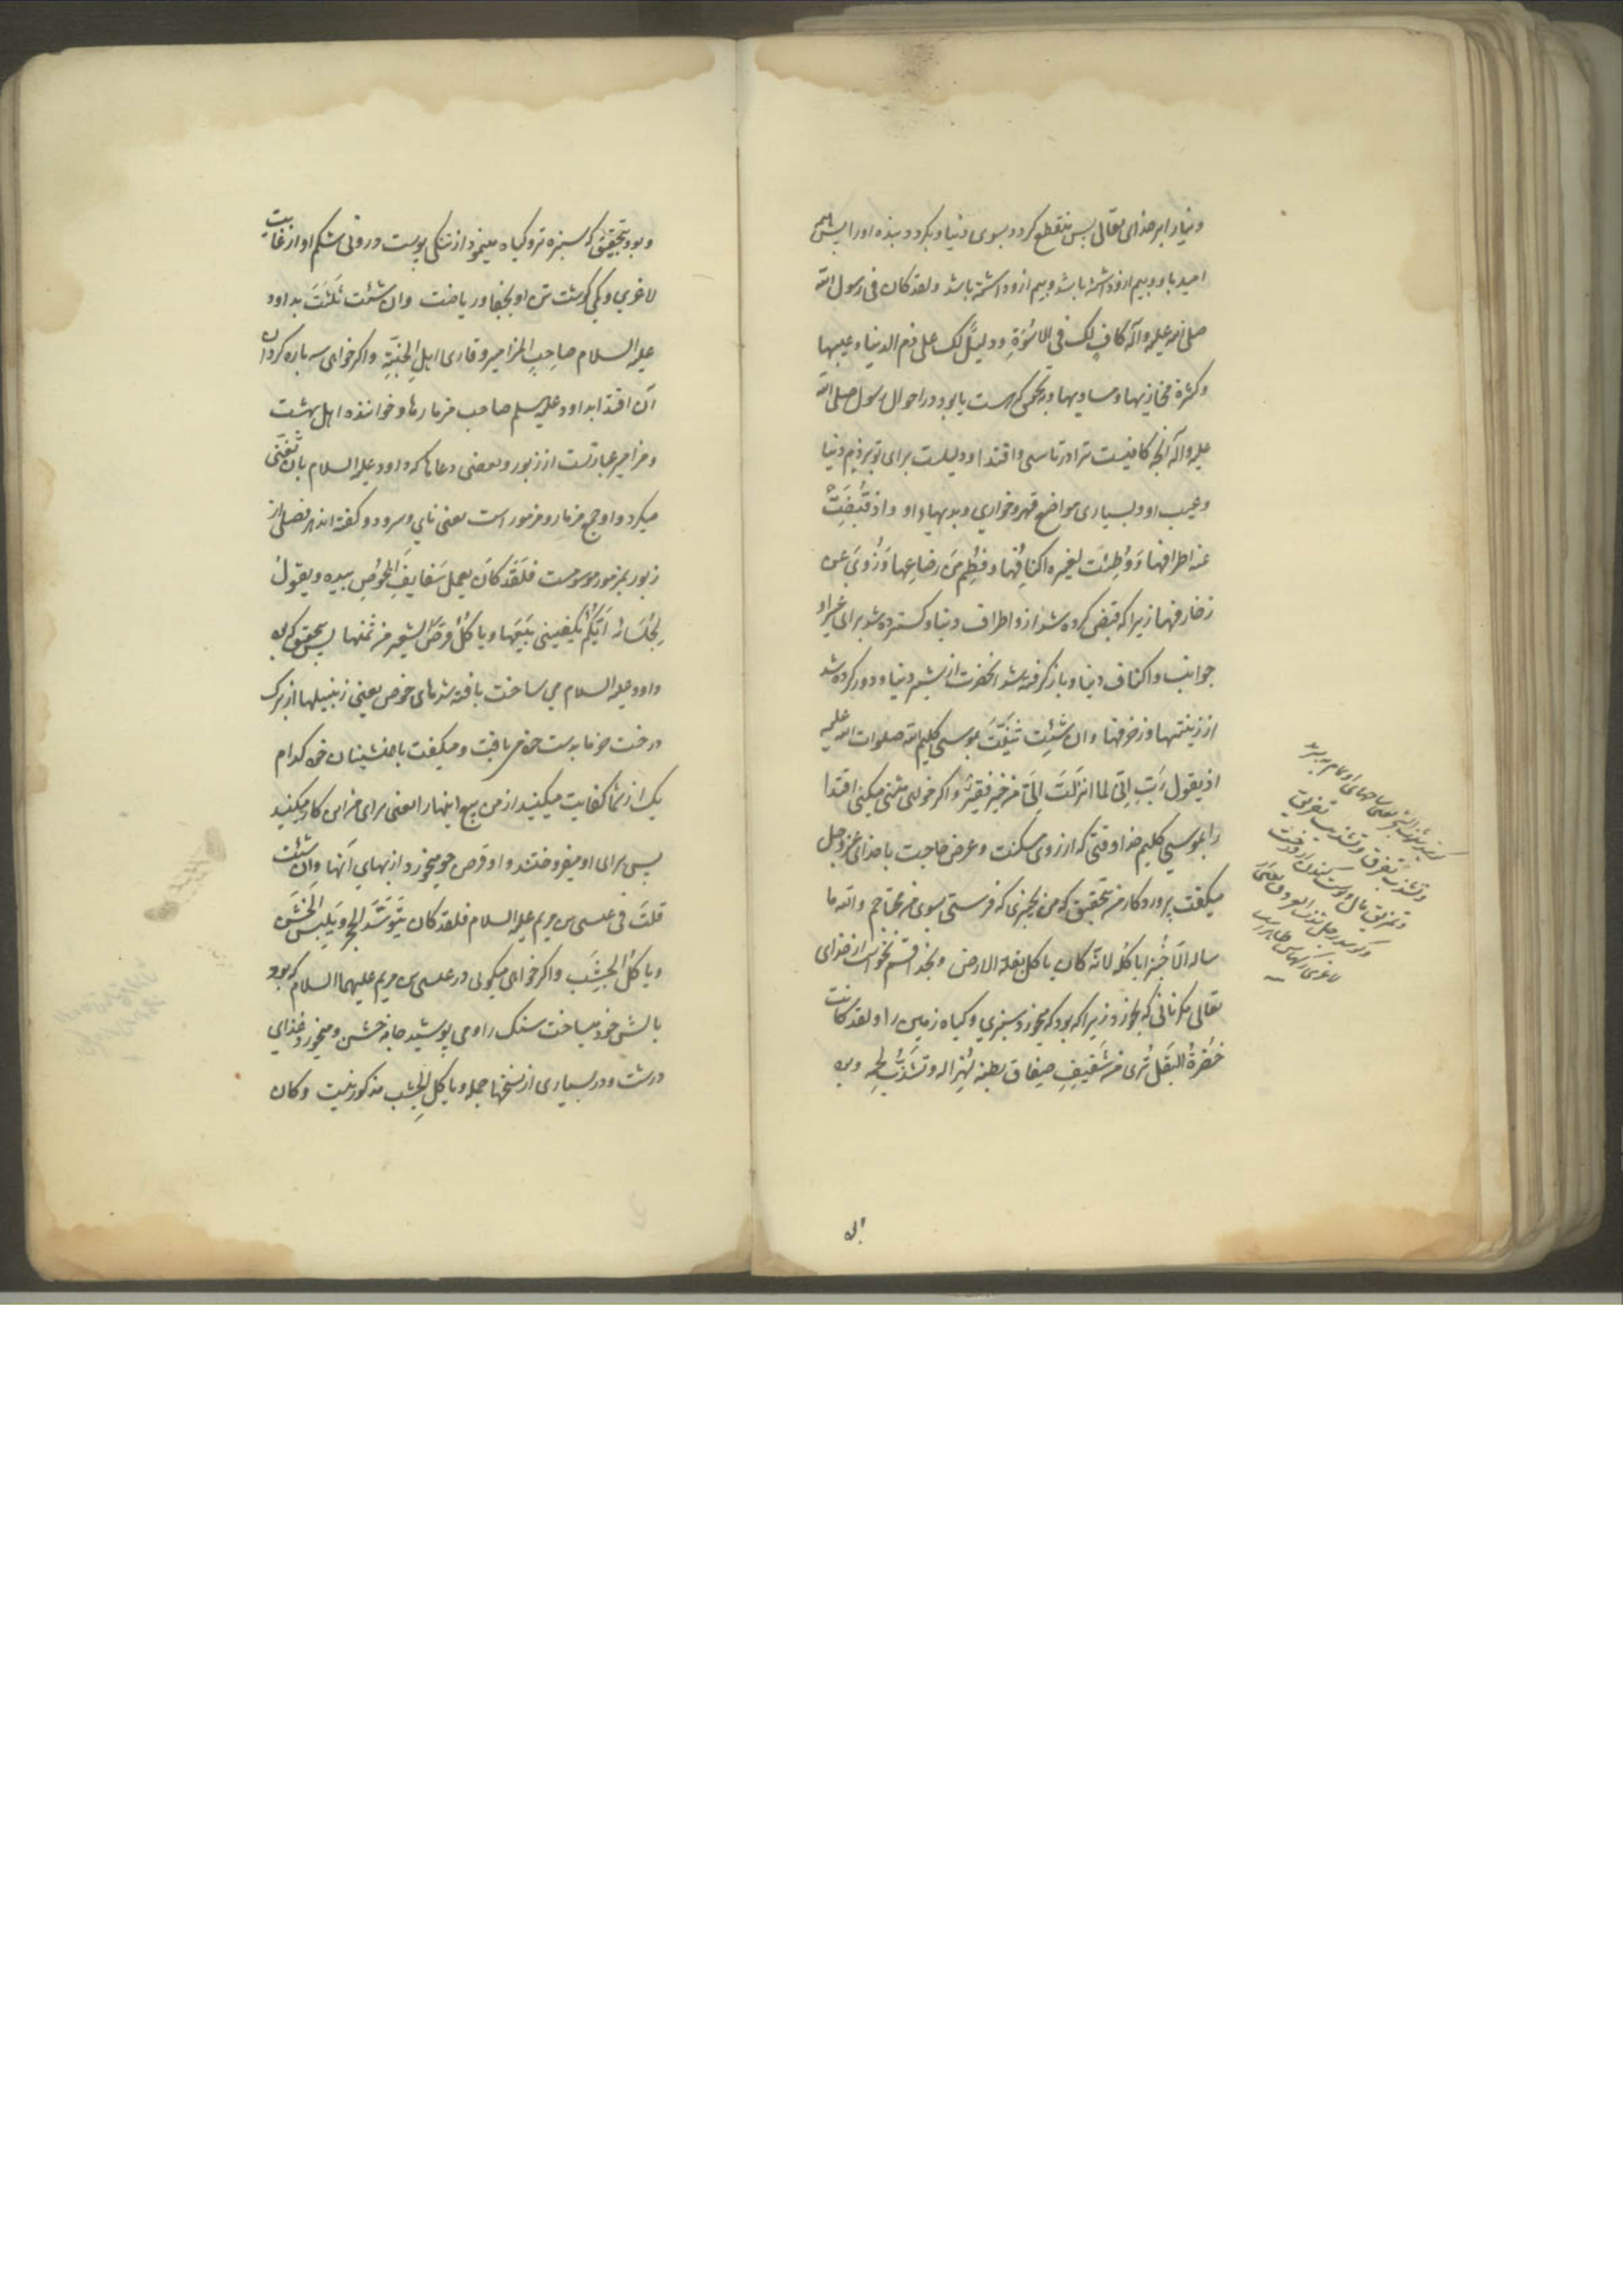 دنیا را بر خدای تعالی پس منقطع کردد بسوی دنیا و بکردد بنده او را بیش
امید باو و بیم ازو داشته باشد و بیم ازو داشته باشد ولقد کان فی رسول الله
صلی الله علیه وآله کافٍ لک فی الاُسْوَةِ ودلیلٌ لک علی ذم الدنیا وعیبها
وکثرة مخازیها ومساویها وبتحقیق که هست یا بود در احوال رسول صلی الله
علیه وآله آنچه کافیست ترا در تاسی واقتدا ودلیلست برای تو بر ذم دنیا
وعیب او وبسیاری مواضع قهر وخواری وبدیها واو واذ قُبِضَتْ
عنه اطرافها وَوُطِئَت لغیره اکنافُها وفُطِمَ مَن رضاعِها وَزُوِیَ عن
زخارفها زیرا که قبض کرده شد ازو اطراف دنیا وکسترده شد برای غیر او
جوانب واکناف دنیا وباز کرفته شد انحضرت از شیر دنیا ودور کرده شد
از زینتها وزخرفها وان شئِت ثَنَّیْتَ بموسی کلیم الله صلوات الله علیه
اذ یقول رَبِّ اِنّی لما انزَلَتَ اِلَیَّ من خیر فقیرٌ واکر خواهی مثنی میکنی اقتدا
را بموسی کلیم خدا وقتی که از روی مسکنت وعرض حاجت با خدای عزوجل
میکفت پروردکار من بتحقیق که من بچیزی که فرستی بسوی من محتاجم والله ما
ساله الّا خُبزا یاکُلُه لانّه کان یاکل بقلة الارض وبخدا قسم نخواست از خدای
تعالی مکر نانی که بخورد زیرا که بود که میخورد سبزی وکیاه زمین را ولقد کانت
خُضرةُ البَقلِ تُری من شَفیفِ صِفاق بطنه لهُزاله وتَشَذُّبِ لحمِه
وبود بتحقیق که سبزه تره وکیاه مینمود از تنکی پوست درونی شکم او از غایت
لاغری وکمی کوشت تن او بجفا وریاضت وان شئت ثَلَّثَتَ بداود
علیه السلام صاحِبِ المزامیر وقاری اهلِ الجنَّةِ واکر خواهی سه باره کردان
آن اقتدا بداود علیه السلم صاحب مزمارها وخواننده اهل بهشت
ومزامیر عبارتست از زبور وبعضی دعاها که داود علیه السلام بان تَغَنّی
میکرد واو جمع مزمار ومزمور است یعنی نای وسرود وکفته اند هر فصلی از
زبور بمزمور موسومست فلَقَد کانَ یعمل سَفایِفَ الخُوصِ بیده ویقولُ
لجُلَسَائه اَیّکُمْ یَکفینی بَیعَها ویاکُلُ قرصَ الشعیر من ثمنها پس بتحقیق که
داود علیه السلام می ساخت بافته شدهای خوص یعنی زنبیلها از برک
درخت خرما بدست خود می بافت ومیکفت با همنشینان خود کدام
یک از شما کفایت میکنید از من بیع اینها را یعنی برای من این کار میکنید
پس برای او میفروختند واو قرص جو میخورد از بهای آنها وان شئت
قلتَ فی عیسی بن مریم علیه السلام فلقد کان یَتَوَسَّدُ الحجر ویَلبس الخَشَن
ویاکلُ الجشِبَ واکر خواهی میکوئی در عیسی بن مریم علیهما السلام که بود
بالش خود میساخت سنک را ومی پوشید جامه خشن ومیخورد غذای
درشت ودر بسیاری از نسخها جمله ویاکلِ الجشب مذکور نیست وکان